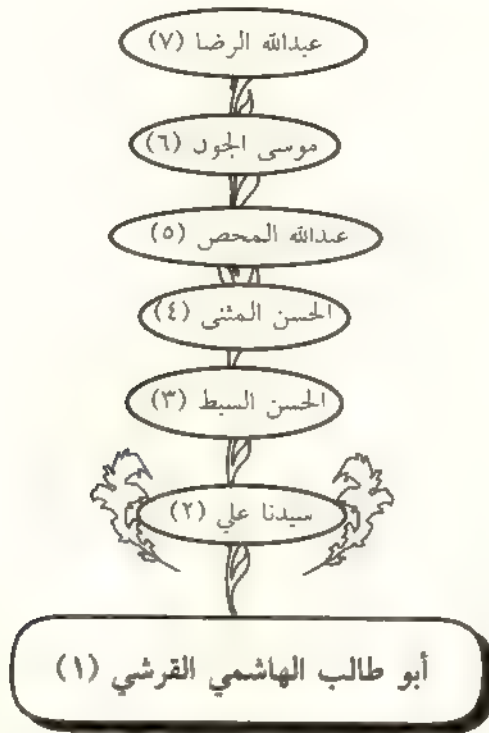 عبدالله الرضا (٧)
موسى الجون (٦)
عبدالله المحض (٥)
الحسن المثنى (٤)
الحسن السبط (٣)
سيدنا علي (٢)
أبو طالب الهاشمي القرشي (١)